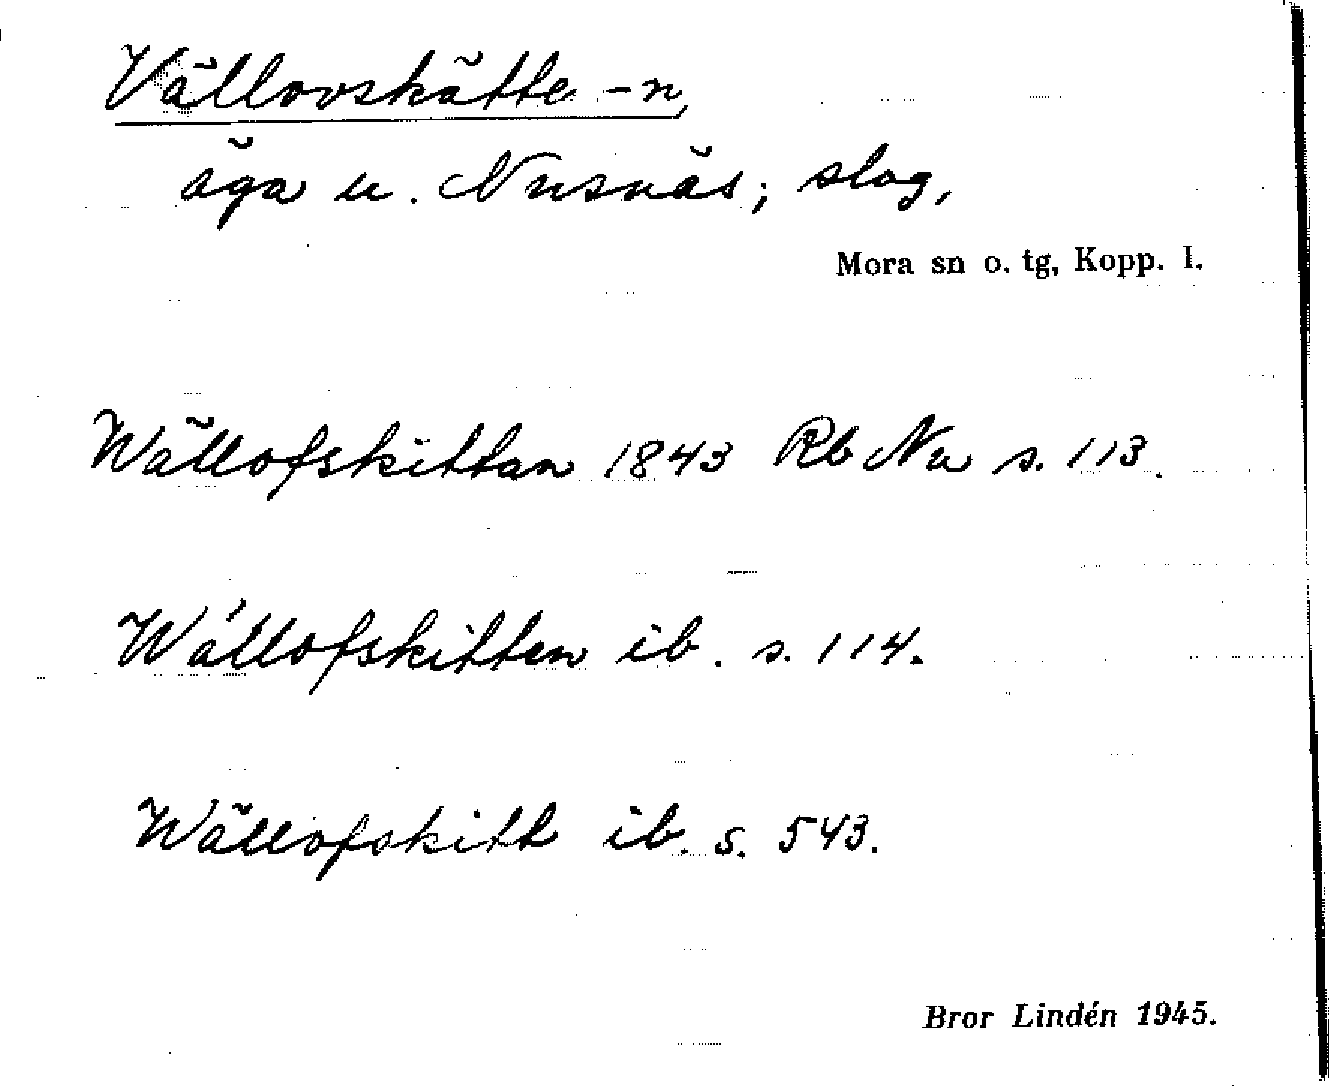 Vällovskätte -n,
äga u. Nusnäs; slog,
Mora sn o. tg, Kopp. l.
Wällofskittan 1843 Rb Nu s. 113.
Wållofskitten ib. s. 114.
Wällofskitt ib. s. 543.
Bror Lindén 1945.